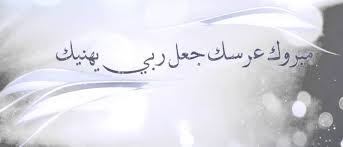 مبروك عرسك جعل ربي يهنيك